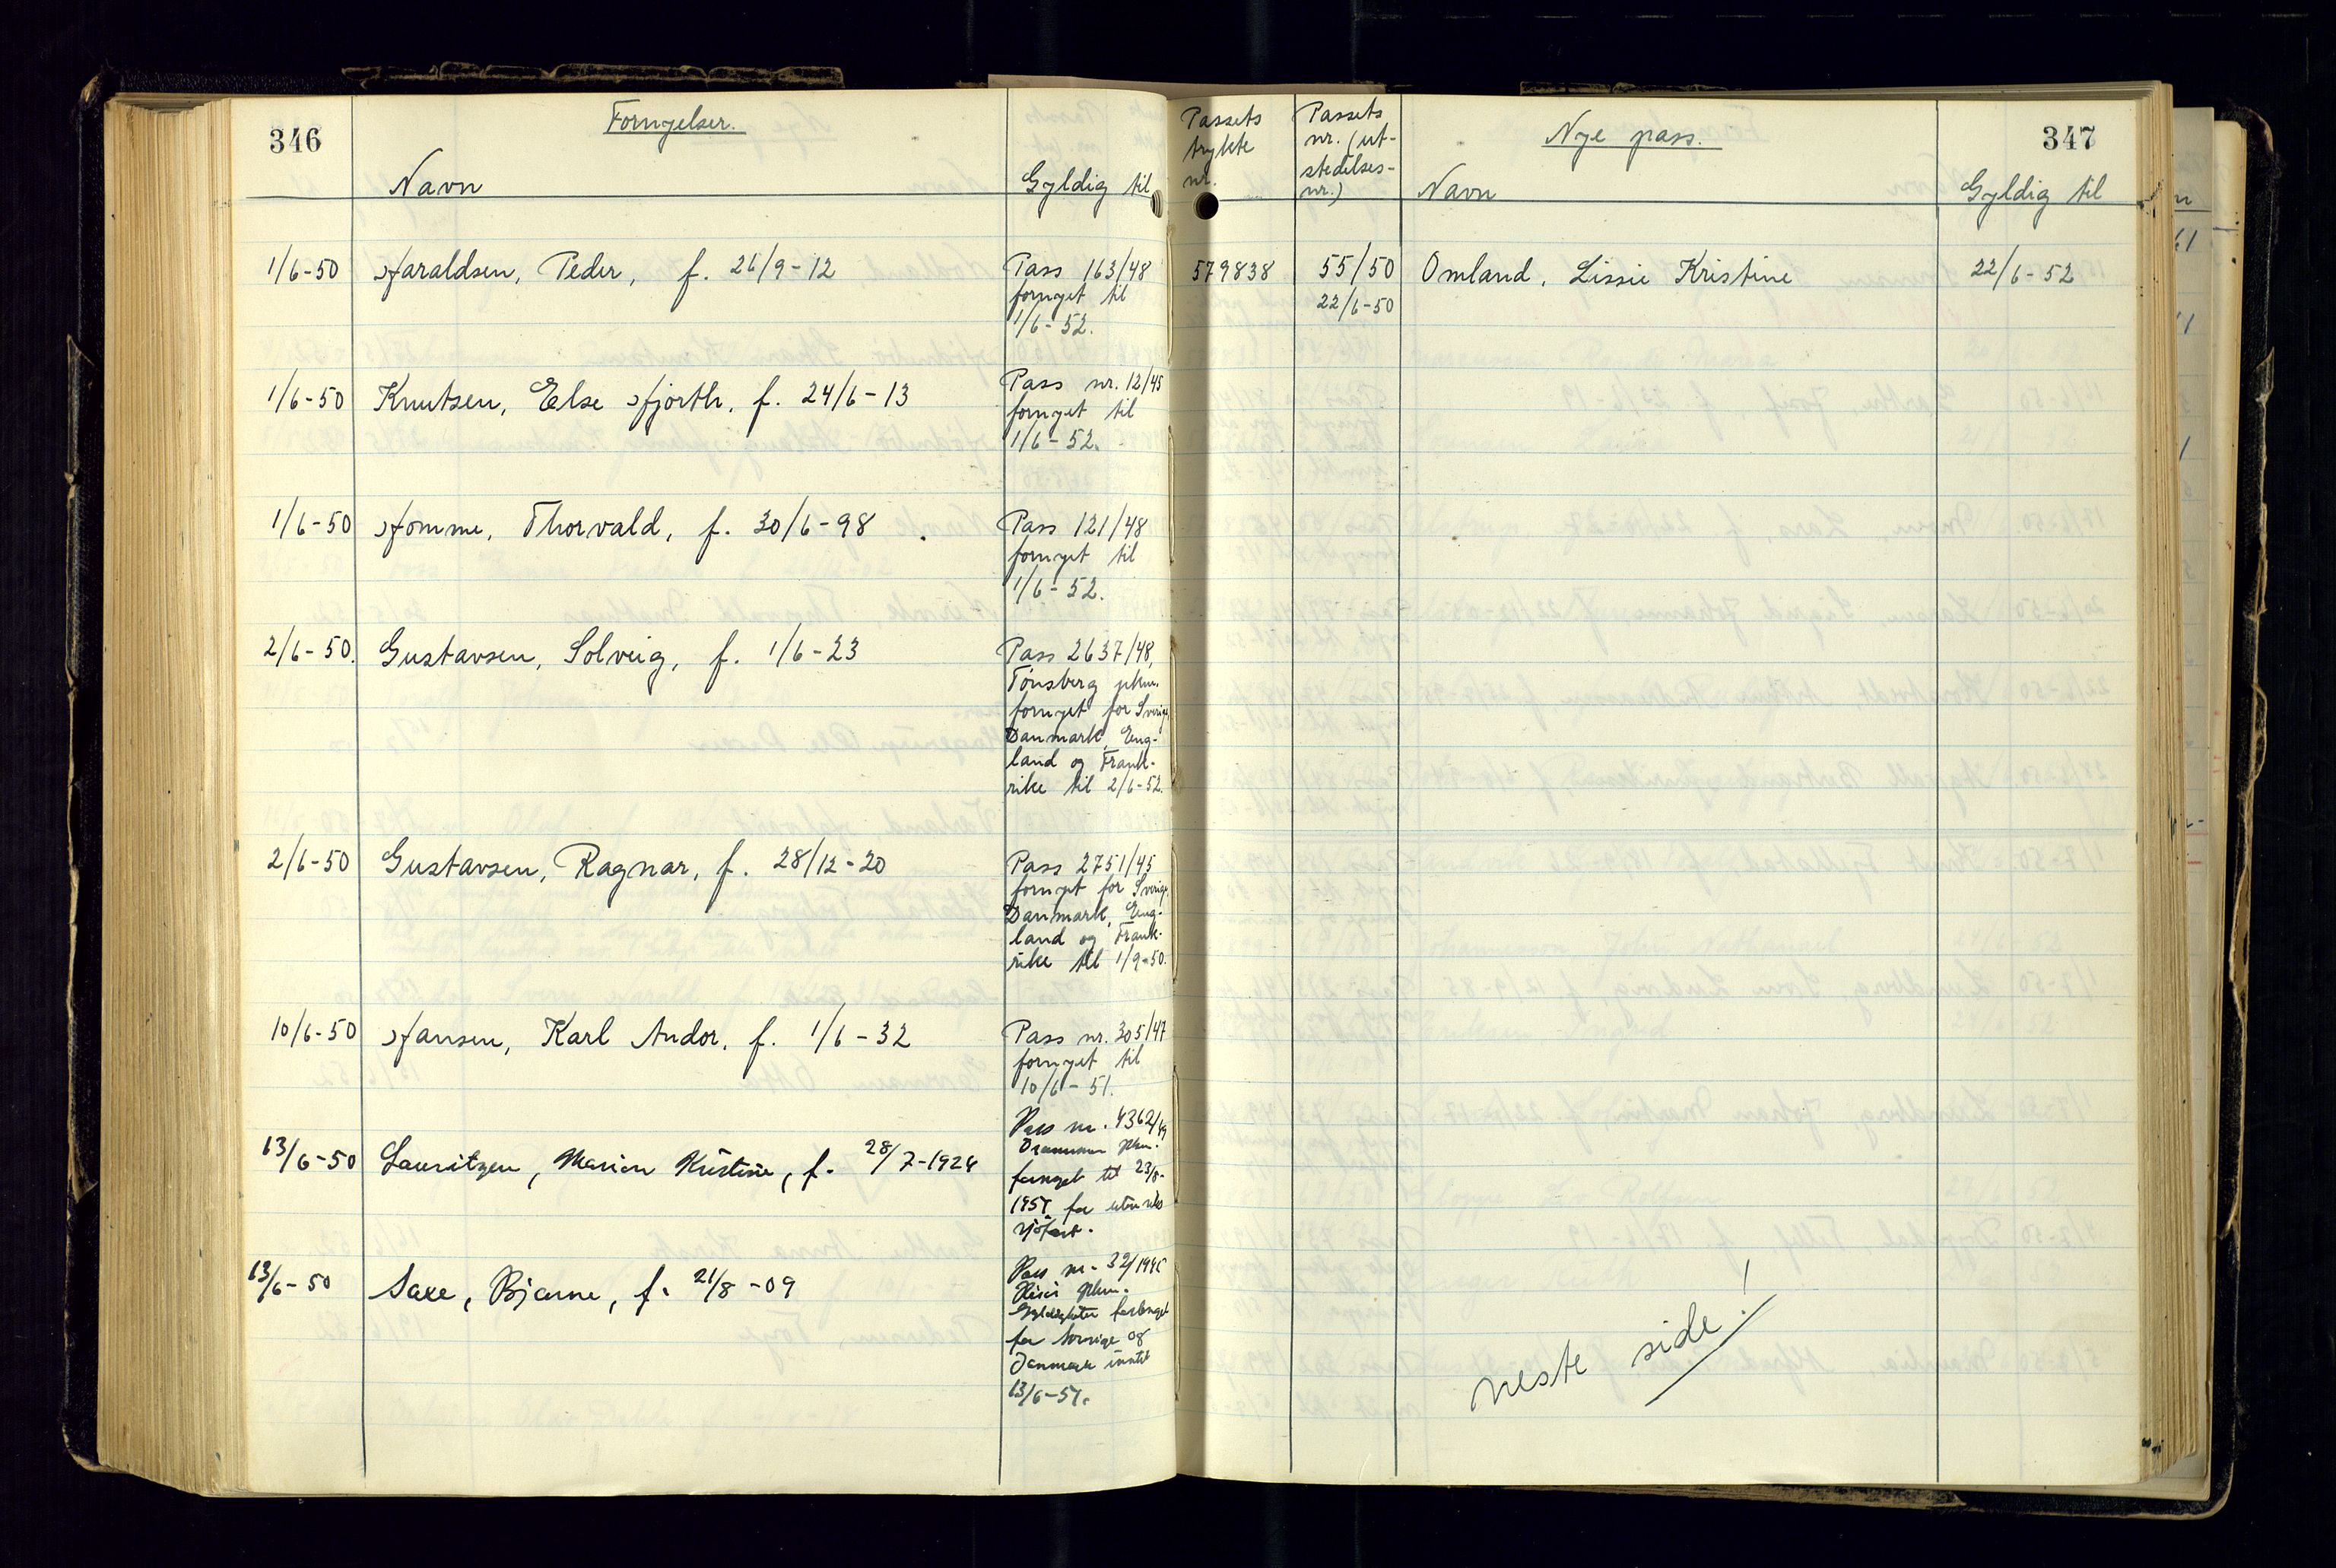 346
Fornyelser.
Navn
Gyldig til
1/6-50 Haraldsen, Peder, f. 26/9-12
Pass 163/48
fornyet til
1/6-52.
1/6-50 Knutsen, Else Hjorth, f. 24/6-13
Pass nr. 12/45
fornyet til
1/6-52.
1/6-50 Homme, Thorvald, f. 30/6-98
Pass 121/48
fornyet til
1/6-52.
2/6-50. Gustavsen, Solveig, f. 1/6-23
Pass 2637/48,
Tønsberg pkm.
fornyet for Sverige,
Danmark, Eng-
land og Frank-
rike til 2/6-52.
2/6-50 Gustavsen, Ragnar, f. 28/12-20
Pass 2751/45
fornyet for Sverige,
Danmark, Eng-
land og Frank-
rike til 1/9-50.
10/6-50 Hansen, Karl Andor, f. 1/6-32
Pass nr. 305/47
fornyet til
10/6-51.
13/6-50 Lauritzen, Marion Kristine, f. 28/7-1924
Pass nr. 4362/49
Drammen pkm.
fornyet til 23/8-
1951 for utenriks
sjøfart.
13/6-50 Saxe, Bjarne, f. 21/8-09
Pass nr. 32/1946
Hisøi pkm.
Gyldigheten forlenget
for Sverige og
Danmark inntil
13/6-51.
347
Passets
trykte
nr.
Passets
nr. (ut-
stedelses-
nr.)
Nye pass.
Navn
Gyldig til
579838 55/50 Omland, Lissie Kristine 22/6-52
22/6-50
neste side!